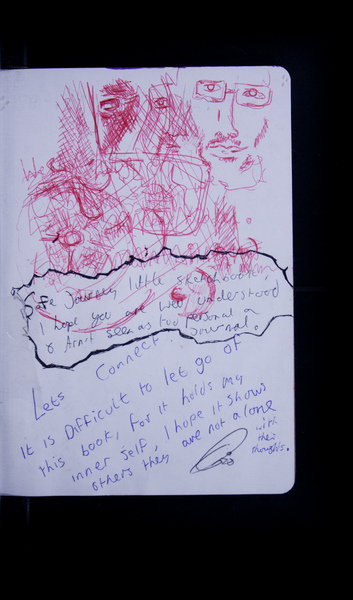 Safe Journey little sketchbook
I hope you are well understood
& Arn't seen as too personal a
Journal.
Lets Connect!
it is Difficult to let go of
this book, for it holds my
inner self, I hope it shows
others they are not alone
with
their
thoughts.